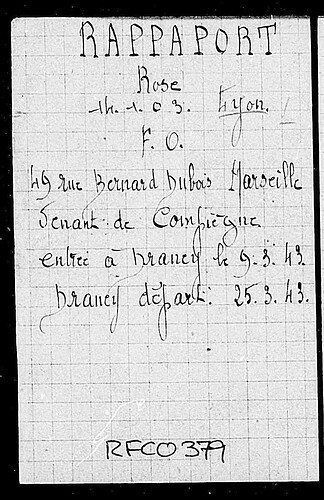 RAPPAPORT
Rose
14.1.03. Lyon.
F.O.
49 rue Bernard Dubois Marseille
Venant de Compiègne
entrée à Drancy le 9.3.43
Drancy départ: 25.3.43.
RFCO379